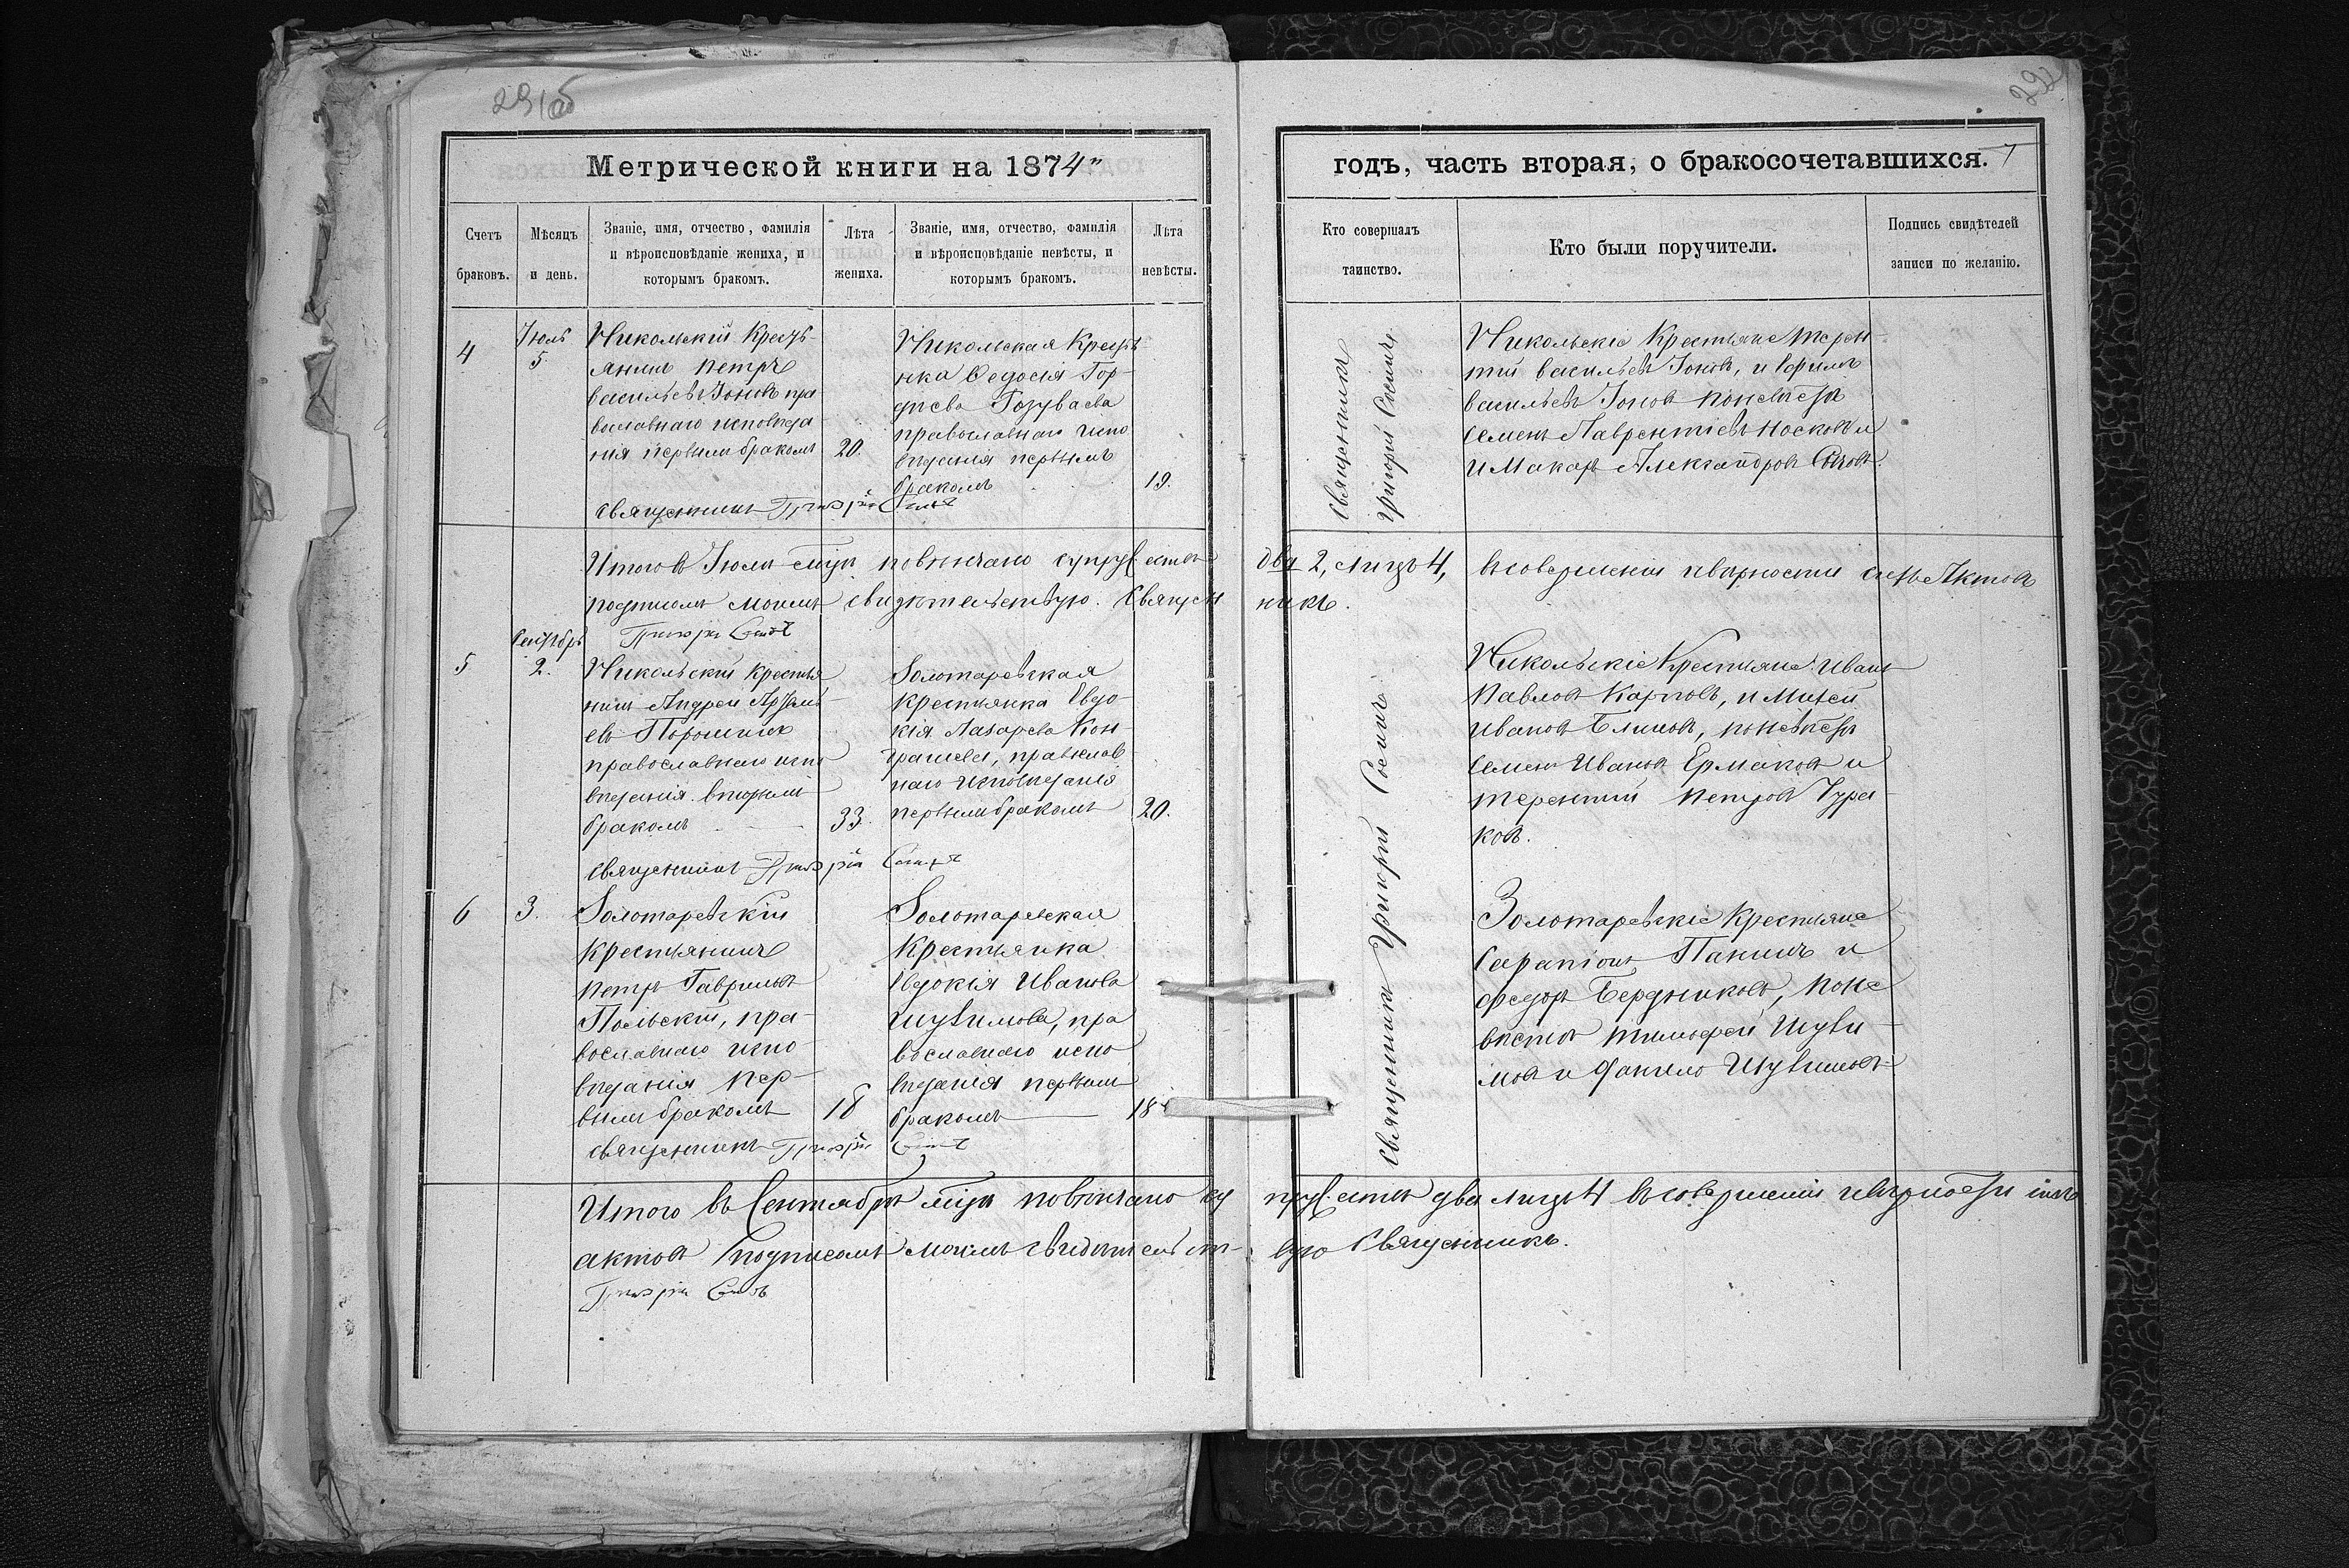 291об
292
Метрической книги на 1874"
годъ, часть вторая, о бракосочетавшихся. 7
Счетъ браковъ.
Мѣсяцъ и день.
Званіе, имя, отчество, фамилія
и вѣроисповѣданіе жениха, и
которымъ бракомъ.
Лѣта
жениха.
Званіе, имя, отчество, фамилія
и вѣроисповѣданіе невѣсты, и
которымъ бракомъ.
Лѣта
невѣсты.
Кто совершалъ
таинство.
Кто были поручители.
Подпись свидѣтелей
записи по желанію.
4
Іюль
5
Никольскій Кресть-
янинъ Петръ
Васильевъ Іоновъ пра
вославнаго исповѣда
нія первымъ бракомъ
20.
Никольская Кресть
нка Ѳедосія Гор-
дѣева
православнаго испо
вѣданія первымъ
бракомъ
19.
Священникъ Григорій
Священникъ
Григорій
Никольскіе Крестьяне Терен-
тій Васильевъ Іоновъ, и Ефимъ
Васильевъ Іоновъ по невѣстѣ
Семенъ Лаврентіевъ Носковъ и
и Макаръ Александровъ
Итого въ Іюлѣ мѣсяцѣ повѣнчано супружествъ
два 2, лицъ 4, въ совершеніи и вѣрности сихъ Актовъ
подписомъ моимъ свидѣтельствую. Священ
никъ.
Григорій
5
Сентябрь
2.
Никольскій крестья
нинъ Андрей
евъ
православнаго испо
вѣданія вторымъ
бракомъ
33.
Золотаревская
крестьянка Евдо-
кія Лазарева Кон-
православ
наго исповѣданія
первымъ бракомъ
20.
Священникъ Григорій
Никольскіе Крестьяне Иванъ
Павловъ Карповъ, и
Ивановъ Блиновъ, по невѣстѣ
Семенъ Ивановъ Ермаковъ и
Терентій Петровъ Чура-
ковъ.
6
3.
Золотаревскій
Крестьянинъ
Петръ Гавриловъ
Польскій, пра-
вославнаго испо-
вѣданія пер-
вымъ бракомъ
18
Золотаревская
Крестьянка
Евдокія Иванова
Шувимова, пра
вославнаго испо
вѣданія первымъ
бракомъ
18
Священникъ Григорій
Священникъ Григорій
Золотаревскіе Крестьяне
Сарапіонъ Панинъ и
Федоръ Бердниковъ, по не
вѣстѣ Тимофей Шуви-
мовъ и Данило Шувимовъ
Итого въ Сентябрѣ мѣсяцѣ повѣнчано су
пружествъ два лицъ 4 въ совершеніи и вѣрности сихъ
актовъ подписомъ моимъ свидѣтельст-
вую Священникъ.
Григорій